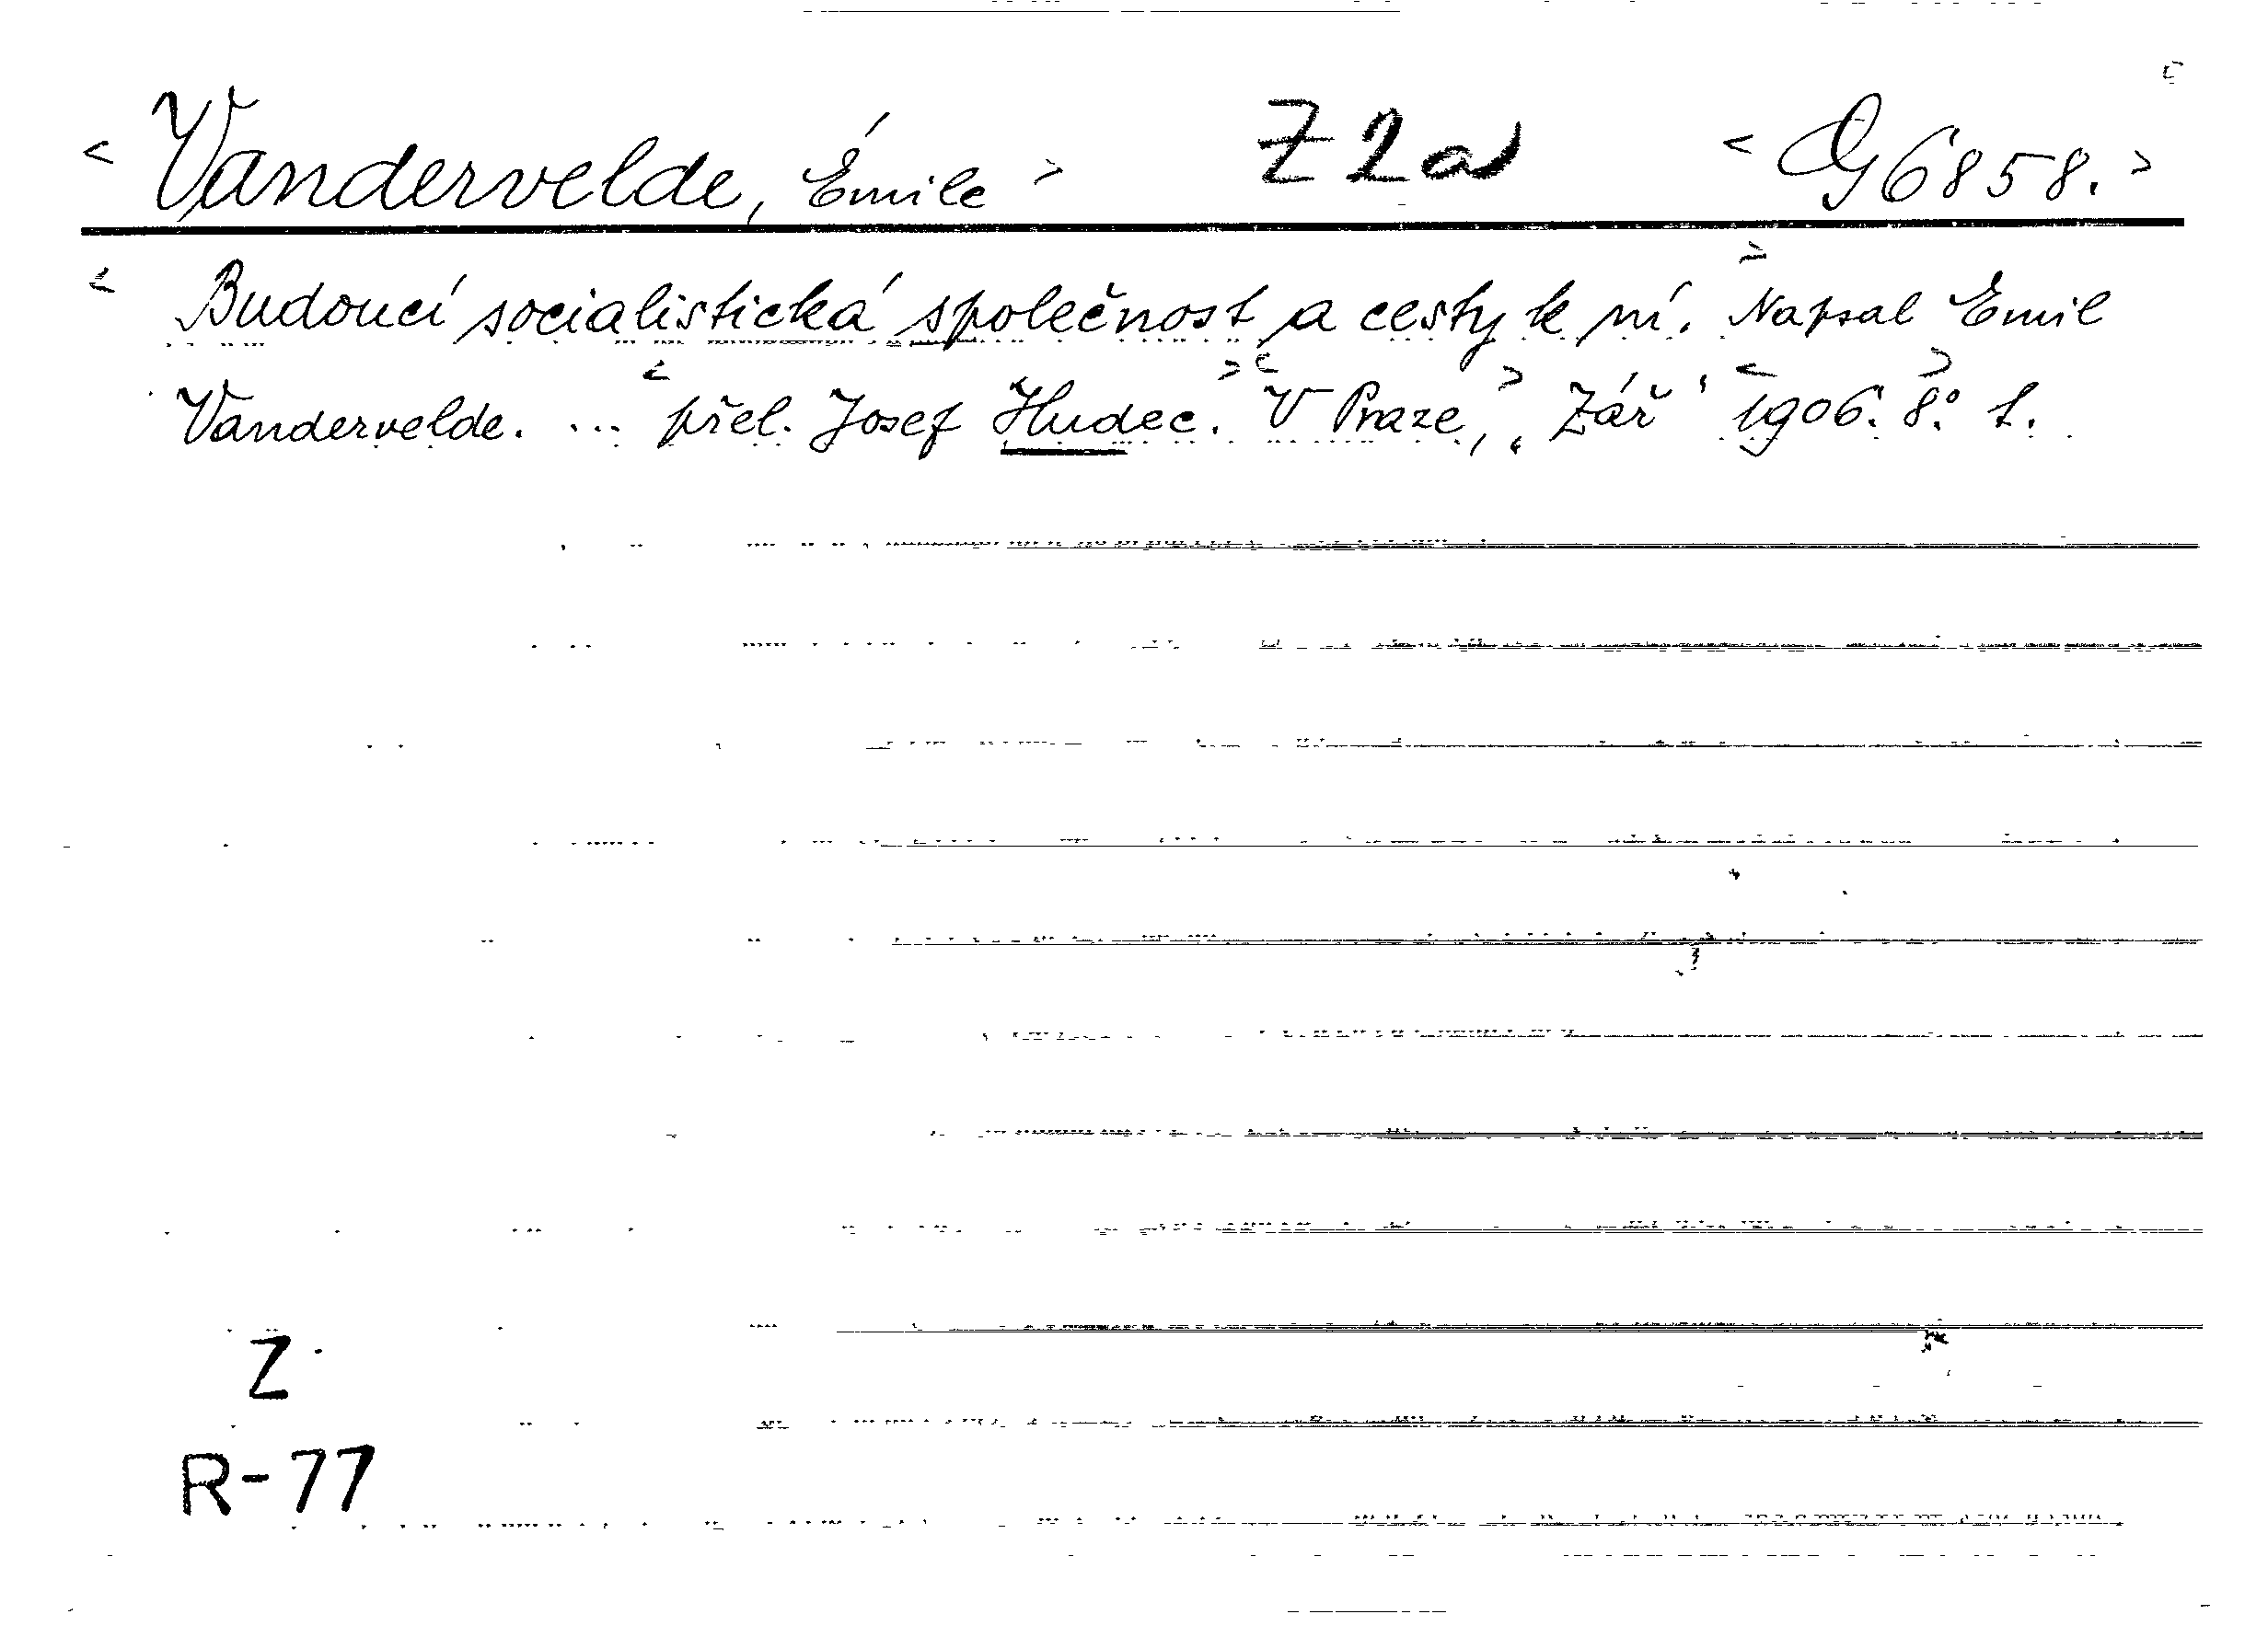 < Vandervelde, Émile > Z 2a < G 6858. >
< Budoucí socialistická společnost a cesty k ní. > Napsal Emil
Vandervelde. ... < přel. Josef Hudec. > < V Praze, > ‚Zář‘ < 1906. > 8.° 1.
Z
R-77